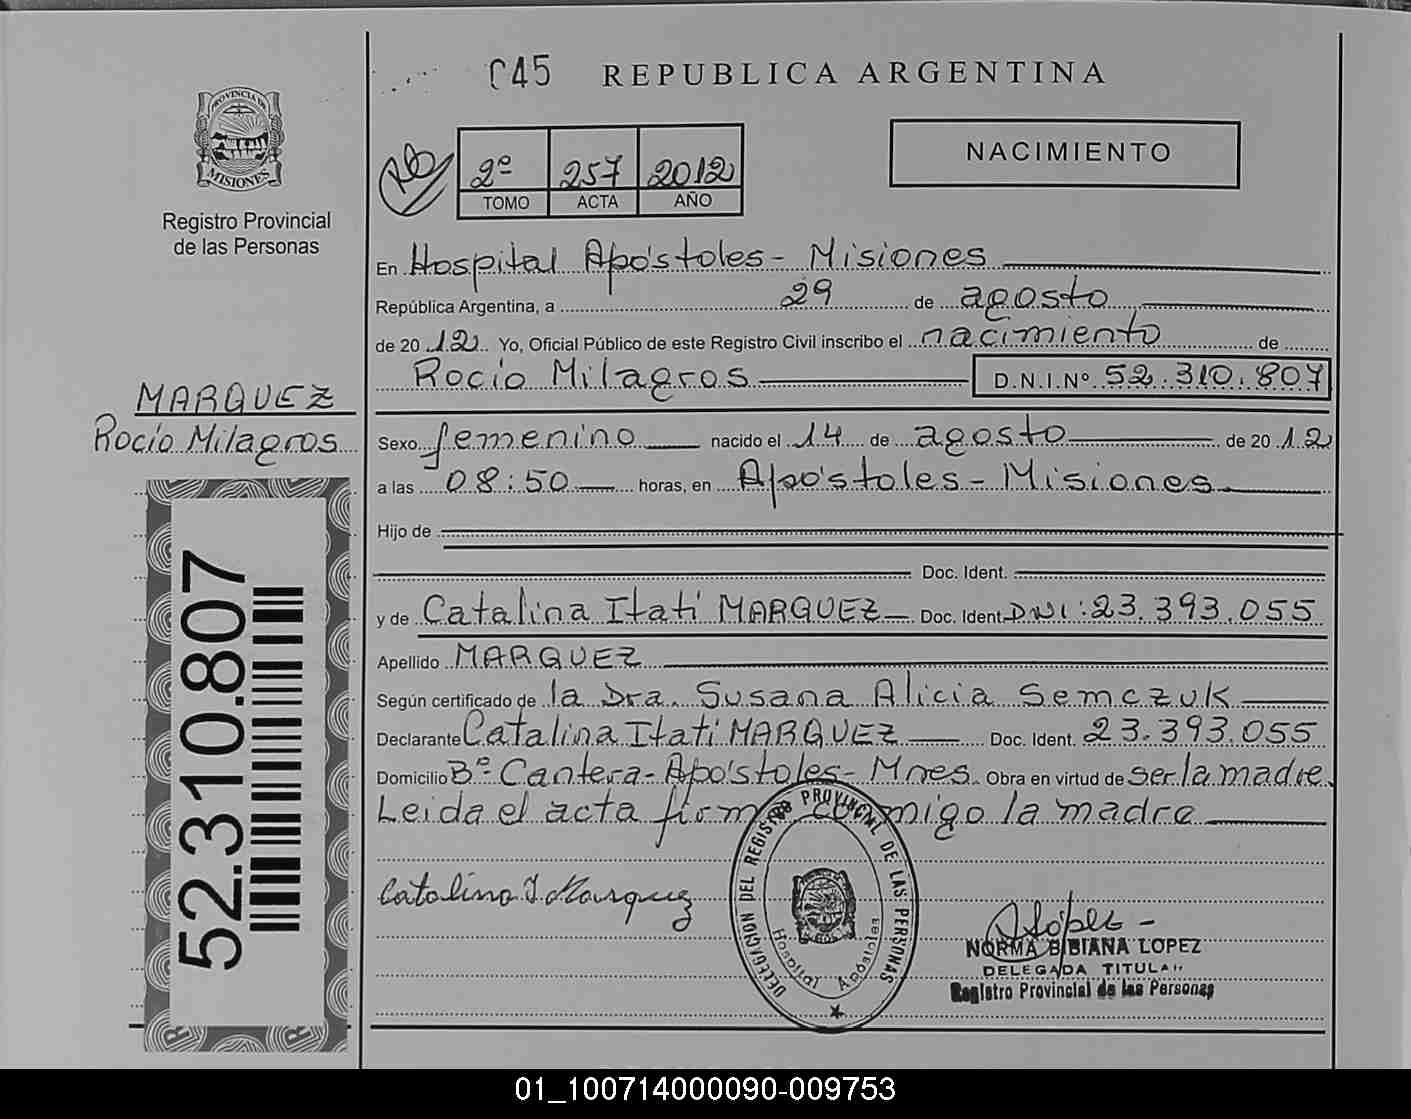 C45 REPUBLICA ARGENTINA
PROVINCIA DE
MISIONES
Registro Provincial
de las Personas
2º 257 2012
TOMO ACTA AÑO
NACIMIENTO
En Hospital Apóstoles - Misiones
República Argentina, a 29 de agosto
de 2012. Yo, Oficial Público de este Registro Civil inscribo el nacimiento de
Rocío Milagros D.N.I.Nº 52.310.807
MARQUEZ
Rocío Milagros
Sexo femenino nacido el 14 de agosto de 2012
a las 08:50 horas, en Apóstoles - Misiones
Hijo de
Doc. Ident.
y de Catalina Itatí MARQUEZ Doc. Ident. DNI: 23.393.055
Apellido MARQUEZ
Según certificado de la Dra. Susana Alicia Semczuk
Declarante Catalina Itatí MARQUEZ Doc. Ident. 23.393.055
Domicilio Bº Cantera - Apóstoles - Mnes. Obra en virtud de ser la madre.
Leida el acta firma conmigo la madre
52.310.807
Catalina I Marquez
DELEGACION DEL REGISTRO PROVINCIAL DE LAS PERSONAS
Hospital Apóstoles
NORMA BIBIANA LOPEZ
DELEGADA TITULAR
Registro Provincial de las Personas
01_100714000090-009753